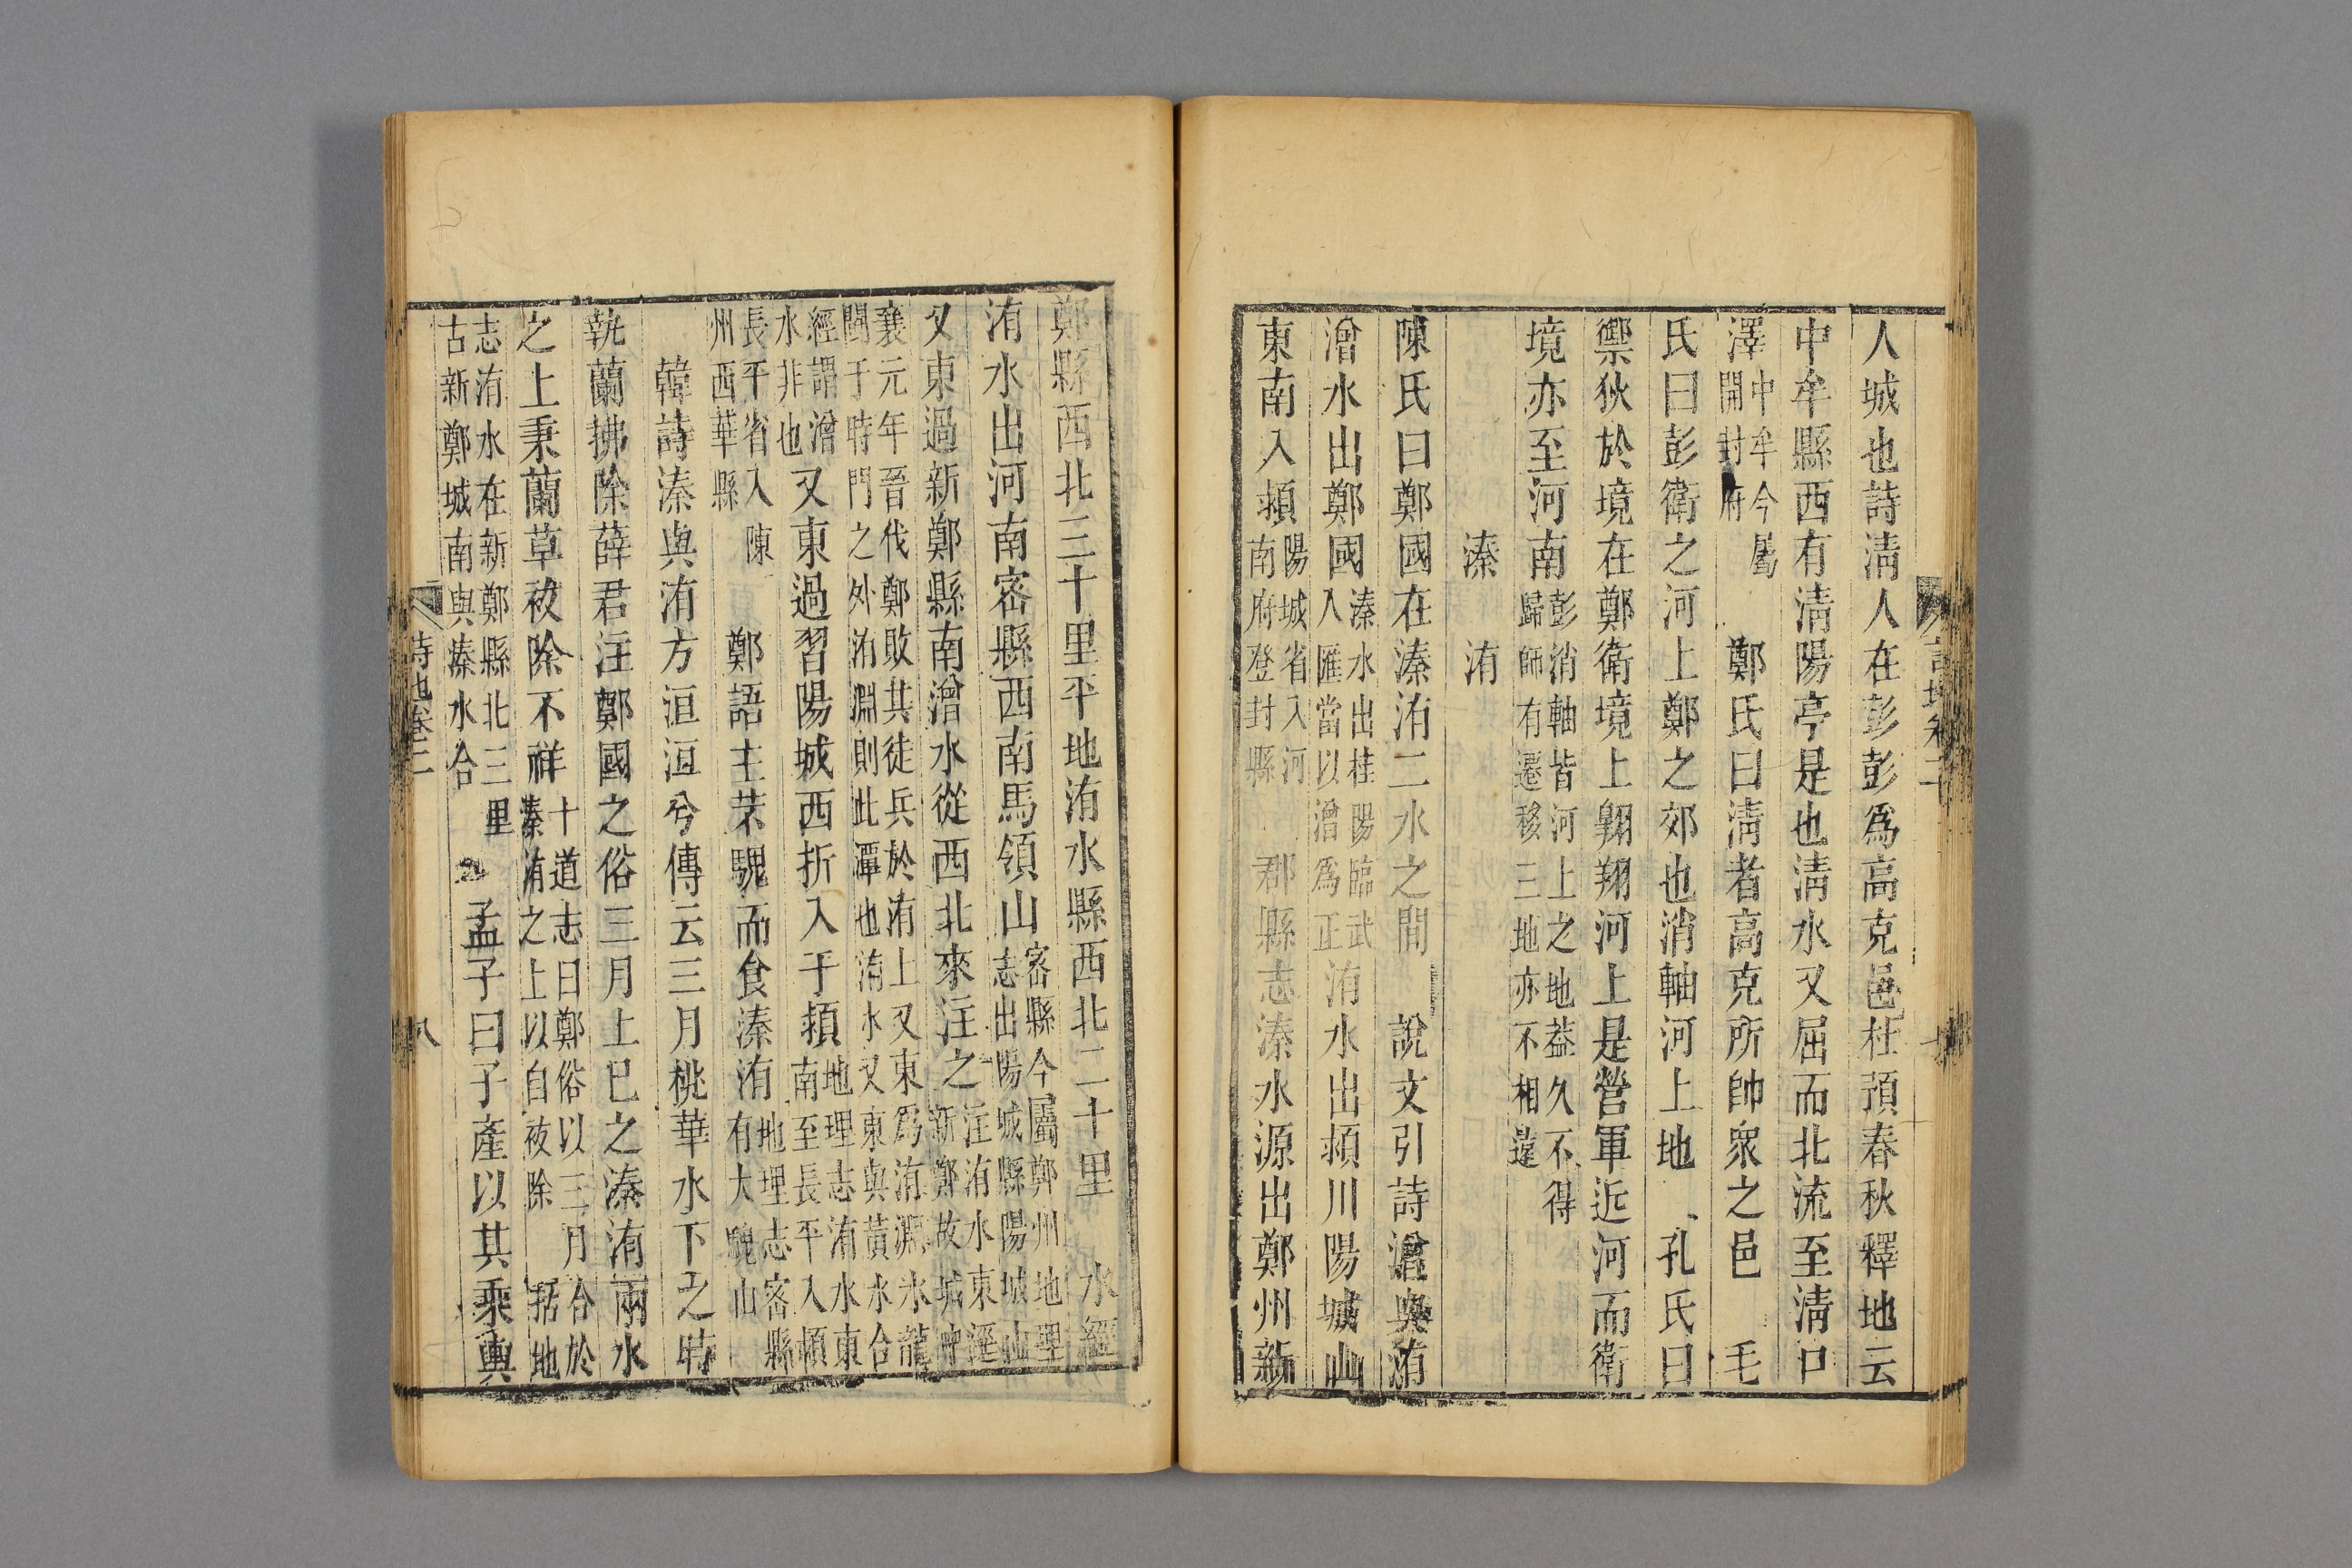 人城也詩清人在彭彭爲高克邑杜預春秋釋地云
中牟縣西有清陽亭是也清水又屈而北流至清口
澤中牟今屬開封府鄭氏曰清者高克所帥衆之邑毛
氏曰彭衛之河上鄭之郊也消軸河上地孔氏曰
禦狄於境在鄭衛境上翱翔河上是營軍近河而衛
境亦至河南彭消軸皆河上之地蓋久不得歸師有遷移三地亦不相遠
溱洧
陳氏曰鄭國在溱洧二水之間說文引詩潧與洧
潧水出鄭國溱水出桂陽臨武入匯當以潧爲正洧水出潁川陽城山
東南入潁陽城省入河南府登封縣郡縣志溱水源出鄭州新
鄭縣西北三十里平地洧水縣西北二十里水經
洧水出河南密縣西南馬領山密縣今屬鄭州地理志出陽城縣陽城山
又東過新鄭縣南潧水從西北來注之注洧水東逕新鄭故城中
襄元年晉伐鄭敗其徒兵於洧上又東爲洧淵水龍鬬于時門之外洧淵則此潭也洧水又東與黃水合
經謂潧水非也又東過習陽城西折入于潁地理志洧水東南至長平入潁
長平省入陳州西華縣鄭語主芣騩而食溱洧地理志密縣有大騩山
韓詩溱與洧方洹洹兮傳云三月桃華水下之時
執蘭拂除薛君注鄭國之俗三月上巳之溱洧兩水
之上秉蘭草祓除不祥十道志曰鄭俗以三月合於溱洧之上以自祓除括地
志洧水在新鄭縣北三里古新鄭城南與溱水合孟子曰子產以其乘輿
詩地卷二
八